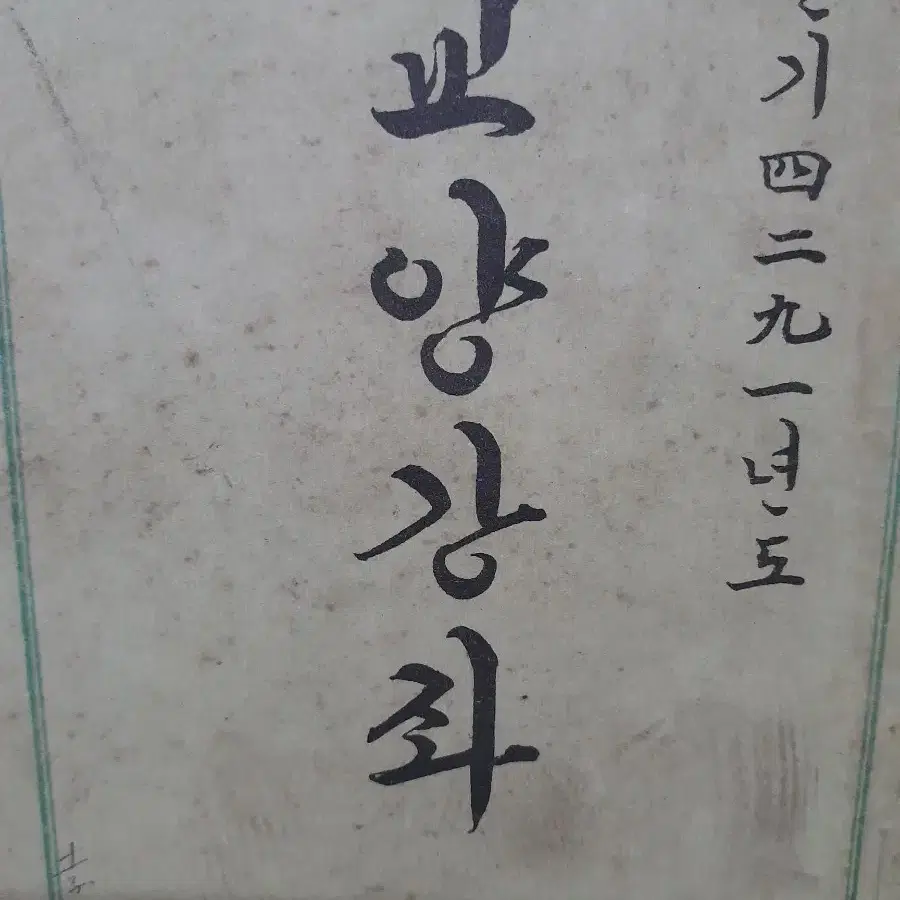 기四二九一년도
교양강좌